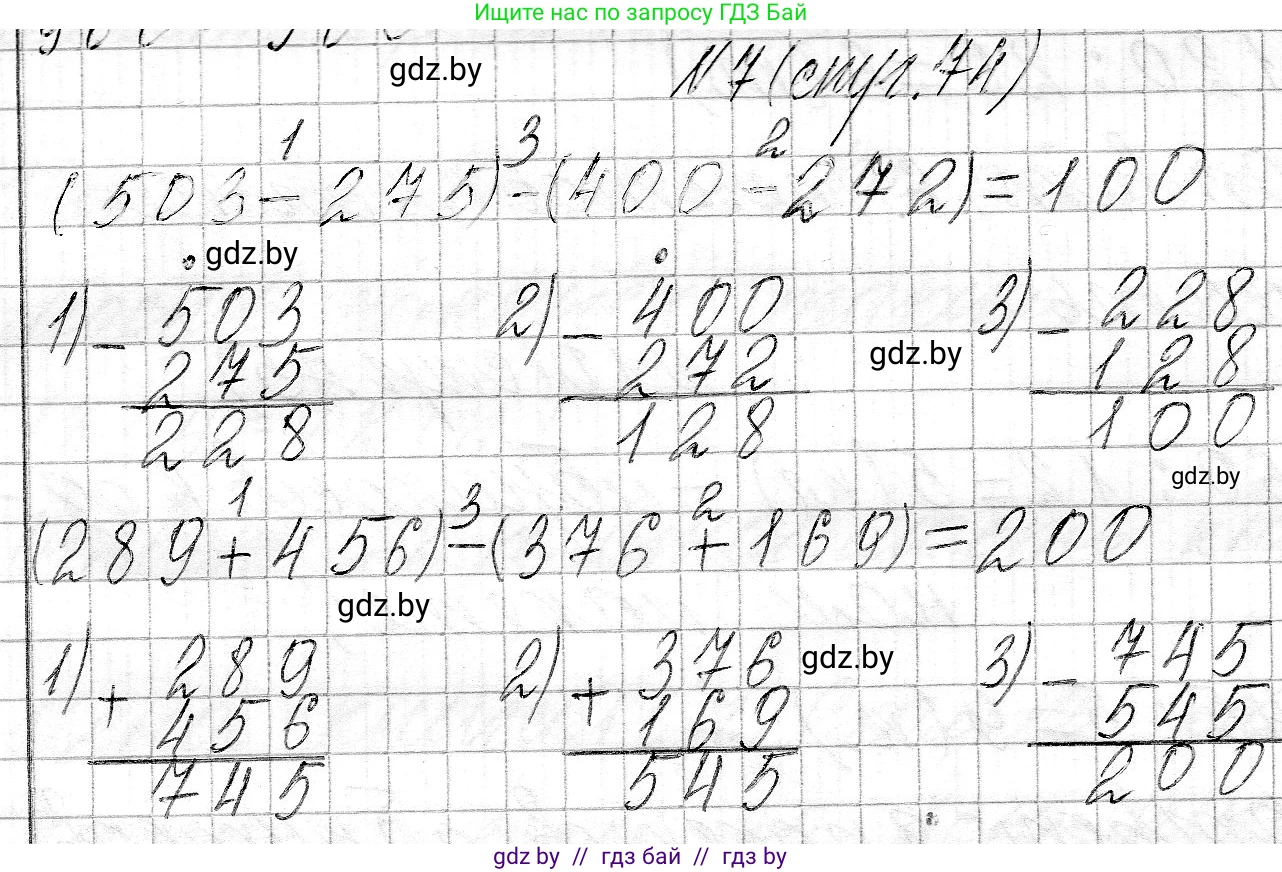 Ищите нас по запросу ГДЗ Бай
gdz.by
N7 (стр. 74)
1 3 2
(503-275)-(400-272)=100
gdz.by
1) - 503 2) - 400 3) - 228
275 272 gdz.by 128
228 128 100
gdz.by
1 3 2
(289+456)-(376+169)=200
gdz.by
1) + 289 2) + 376 gdz.by 3) - 745
456 169 545
745 545 200
gdz.by // гдз бай // гдз by